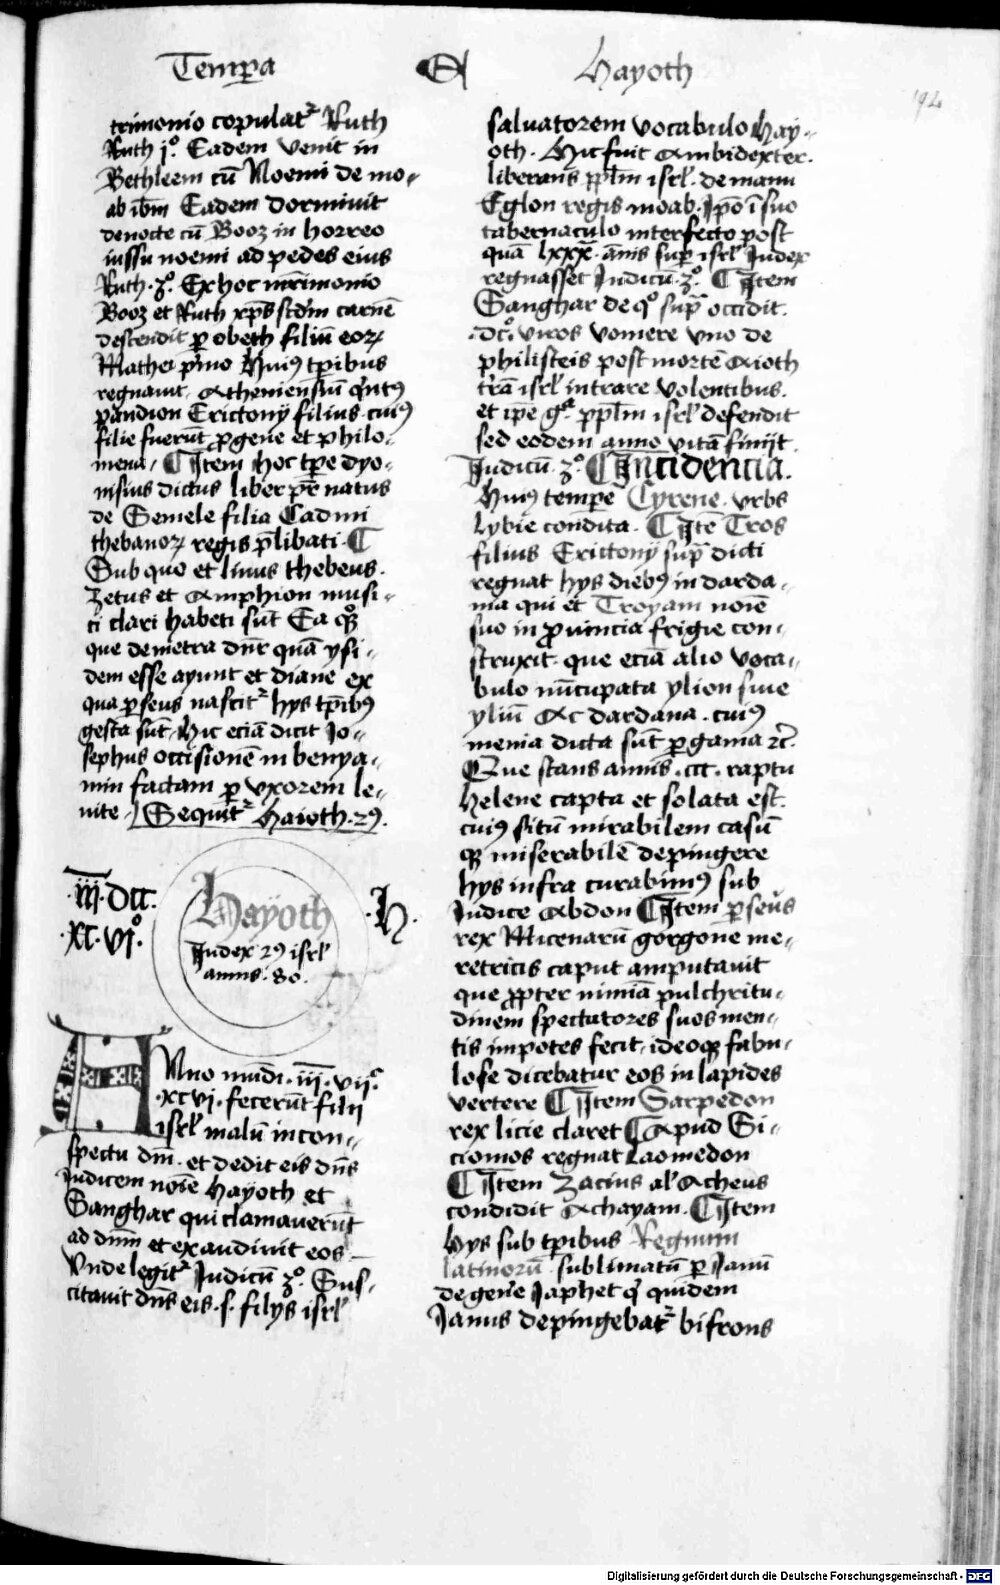 Temꝑa
Hayoth
194
trimonio copulatᷣ Ruth
Ruth jº. Eadem venit in
Bethleem cū Noemi de mo-
ab ibm̄ Eadem dormiuit
de nocte cū Booz in horreo
iussu noemi ad pedes eius
Ruth .3º. Ex hoc mr̄imonio
Booz et Ruth xp̄s scd̄m carnē
descendit ꝑ obeth filiū eoꝝ
Mathei p̄mo Huiꝰ tꝑibus
regnauit Atheniensiū qͥntꝰ
pandion Erictonij filius cuiꝰ
filie fuerūt progene et philo-
mena. ¶ Item hoc tꝑe dyo-
nisius dictus liber pr̄ natus
de Semele filia Cadmi
thebanoꝝ regis p̄libati. ¶
Sub quo et linus thebeus.
Zetus et Amphion musi-
ci clari habeti sūt Ea qꝫ
que demetra dnr̄ quā ysi-
dem esse ayunt et diane ex
qua perseus nascitᷣ hys tꝑibꝰ
gesta sūt. Hic eciā dicit Jo-
sephus occisionē in benya-
min factam ꝑ vxorem le-
uite. Sequitᷣ Haioth .2ꝰ.
.iij. DCC.
.XC.VIº.
Hayoth
Judex 2ꝰ isrl̄
annis .80.
.h.
ANno mundi .iij. vijᶜ.
.xcvi. fecerūt filij
isrl̄ malū in con-
spectu dn̄i. et dedit eis dn̄s
Judicem noīe Hayoth et
Sanghar qui clamauerūt
ad dnm̄ et exaudiuit eos
Vnde legitᷣ Judicū 3º. Sus-
citauit dn̄s eis .s. filys isrl̄
saluatorem vocabulo Hay-
oth. Hic fuit Ambidexter.
liberans ppl̄m isrl̄. de manu
Eglon regis moab. Ip̄o ī suo
tabernaculo interfecto post
quā lxxx. annis suꝑ isrl̄ Judex
regnasset Judicū .3º. ¶ Item
Sanghar de qº supᵃ occidit
.dcº. viros vomere vno de
philisteis post mortē Aioth
tr̄ā isrl̄ intrare volentibus.
et ip̄e gᵃ ppl̄m isrl̄ defendit
sed eodem anno vitā finijt.
Judicū .3º. ¶ Incidencia.
Huiꝰ tempe Cyrene vrbs
lybie condita. ¶ Itē Tros
filius Erictonij supᵃ dicti
regnat hys diebꝰ in darda-
nia qui et Troyam noīe
suo in prouincia frigie con-
struxit. que eciā alio voca-
bulo nūcupata ylion siue
yliū Ac dardana. cuiꝰ
menia dicta sūt pergama ꝛc̄.
Que stans annis .ccc. raptu
Helene capta et solata est.
cuiꝰ sitū mirabilem casū
qꝫ miserabilē depingere
hys infra curabimꝰ sub
Judice Abdon ¶ Item perseus
rex Micenarū gorgone me-
retricis caput amputauit
que propter nimiā pulchritu-
dinem spectatores suos men-
tis impotes fecit. ideoqꝫ fabu-
lose dicebatur eos in lapides
vertere ¶ Item Sarpedon
rex licie claret ¶ Apud Si-
cionios regnat Laomedon
¶ Item Zacius al' Acheus
condidit Achayam. ¶ Item
Hys sub tꝑibus Regnum
latinorū sublimatū ꝑ Janū
de gene Japhet qͥ quidem
Janus depingebatᷣ bifrons
Digitalisierung gefördert durch die Deutsche Forschungsgemeinschaft - DFG